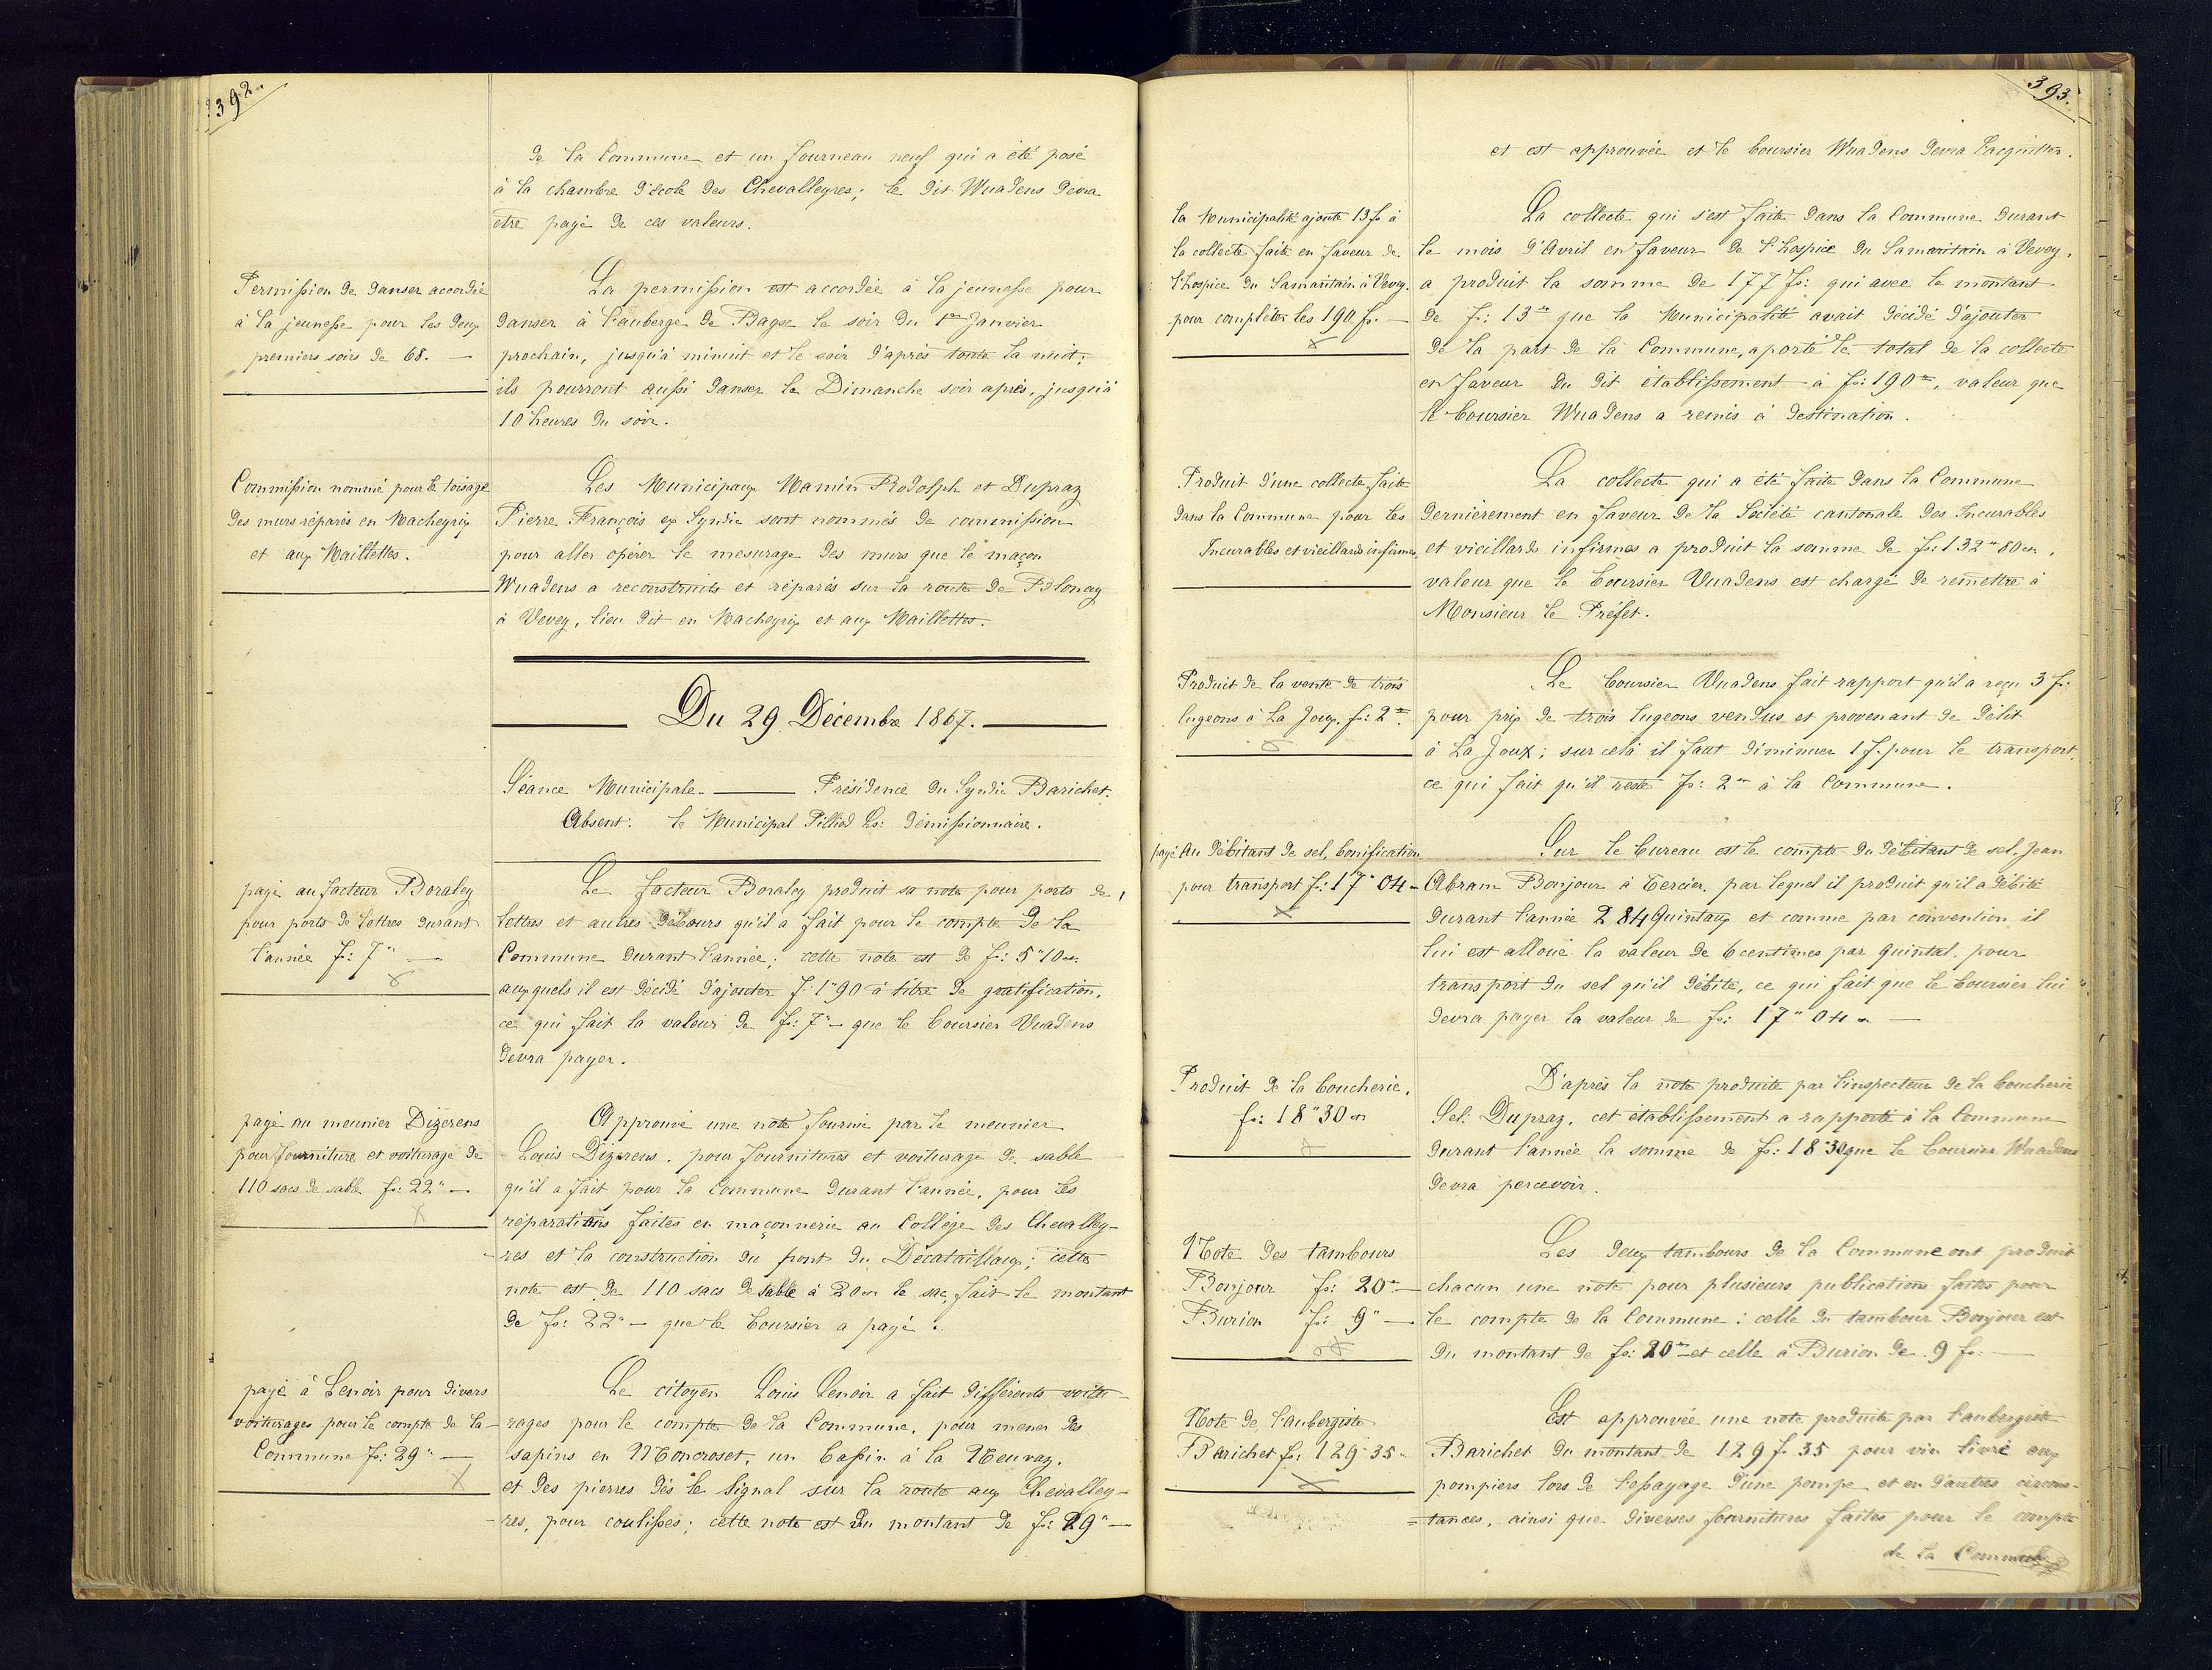 392.
de la Commune et un fourneau neuf qui a été posé
à la chambre d'école des Chevalleyres; le dit Wuadens devra
être payé de ces valeurs.
Permission de danser accordée
à la jeunesse pour les deux
premiers soirs de 68. —
La permission est accordée à la jeunesse pour
danser à l'auberge de Bayse le soir du 1er Janvier
prochain, jusqu'à minuit et le soir d'après toute la nuit;
ils pourront aussi danser le Dimanche soir après, jusqu'à
10 heures du soir.
Commission nommé pour le toisage
des murs réparés en Macheyrix
et aux Maillettes.
Les Municipaux Mamin Rodolph et Dupraz
Pierre François ex Syndic sont nommés de commission
pour aller opérer le mesurage des murs que le maçon
Wuadens a reconstruits et réparés sur la route de Blonay
à Vevey, lieu dit en Macheyrix et aux Maillettes.
Du 29 Décembre 1867.
Séance Municipale. — Présidence du Syndic Barichet.
Absent: le Municipal Pilliod Ls: démissionnaire.
payé au facteur Boraley
pour ports de lettres durant
l'année fr: 7" —
Le facteur Boraley produit sa note pour ports de
lettres et autres débours qu'il a fait pour le compte de la
Commune durant l'année; cette note est de fr: 5"10 cs.
auxquels il est décidé d'ajouter f. 1"90 à titre de gratification,
ce qui fait la valeur de fr: 7"— que le boursier Vuadens
devra payer.
payé au meunier Dizerens
pour fourniture et voiturage de
110 sacs de sable fr: 22" —
Approuvé une note fournie par le meunier
Louis Dizerens, pour fournitures et voiturage de sable
qu'il a fait pour la Commune durant l'année, pour les
réparations faites en maçonnerie au Collège des Chevalley-
-res et la construction du pont du Décataillaux; cette
note est de 110 sacs de sable à 20 cs le sac, fait le montant
de fr: 22" — que le boursier a payé.
payé à Lenoir pour divers
voiturages pour le compte de la
Commune fr: 29" —
Le citoyen Louis Lenoir a fait différents voitu-
rages pour le compte de la Commune, pour mener des
sapins en Moncroset, un bassin à la Neuvaz,
et des pierres dès le Signal sur la route aux Chevalley-
-res, pour coulisses; cette note est du montant de fr: 29" —
393.
et est approuvée et le boursier Wuadens devra l'acquitter.
la Municipalité ajoute 13 fr à
la collecte faite en faveur de
l'hospice du Samaritain à Vevey.
pour compléter les 190 fr. —
La collecte qui s'est faite dans la Commune durant
le mois d'Avril en faveur de l'hospice du Samaritain à Vevey,
a produit la somme de 177 fr: qui avec le montant
de fr: 13" que la Municipalité avait décidé d'ajouter
de la part de la Commune, a porté le total de la collecte
en faveur du dit établissement à fr: 190", valeur que
le boursier Wuadens a remis à destination.
Produit d'une collecte faite
dans la Commune pour les
Incurables et vieillards infirmes.
La collecte qui a été faite dans la Commune
dernièrement en faveur de la Société cantonale des Incurables
et vieillards infirmes a produit la somme de fr: 132"80 cs,
valeur que le boursier Vuadens est chargé de remettre à
Monsieur le Préfet.
Produit de la vente de trois
lugeons à La Joux. fr: 2"
Le boursier Vuadens fait rapport qu'il a reçu 3 fr:
pour prix de trois lugeons vendus et provenant de délit
à La Joux; sur cela il faut diminuer 1 f. pour le transport,
ce qui fait qu'il reste fr: 2" à la Commune.
payé Au débitant de sel, bonification
pour transport fr: 17"04 cs
Sur le bureau est le compte du débitant de sel, Jean
Abram Bonjour à Tercier, par lequel il produit qu'il a débité
durant l'année 284 Quintaux et comme par convention il
lui est alloué la valeur de 6 centimes par quintal, pour
transport du sel qu'il débite, ce qui fait que le boursier lui
devra payer la valeur de fr: 17"04 cs —
Produit de la boucherie.
fr: 18"30 cs
D'après la note produite par l'inspecteur de la boucherie
Sel. Dupraz, cet établissement a rapporté à la Commune
durant l'année la somme de fr: 18"30 que le boursier Wuadens
devra percevoir.
Note des tambours
Bonjour fr: 20" —
Burion fr: 9" —
Les deux tambours de la Commune ont produit
chacun une note pour plusieurs publications faites pour
le compte de la Commune: celle du tambour Bonjour est
du montant de fr: 20" et celle à Burion de 9 fr. —
Note de l'aubergiste
Barichet fr: 129"35
Est approuvée une note produite par l'aubergiste
Barichet du montant de 129 f 35 pour vin livré aux
pompiers lors de l'essayage d'une pompe et en d'autres circons-
=tances, ainsi que diverses fournitures faites pour le compte
de la Commune